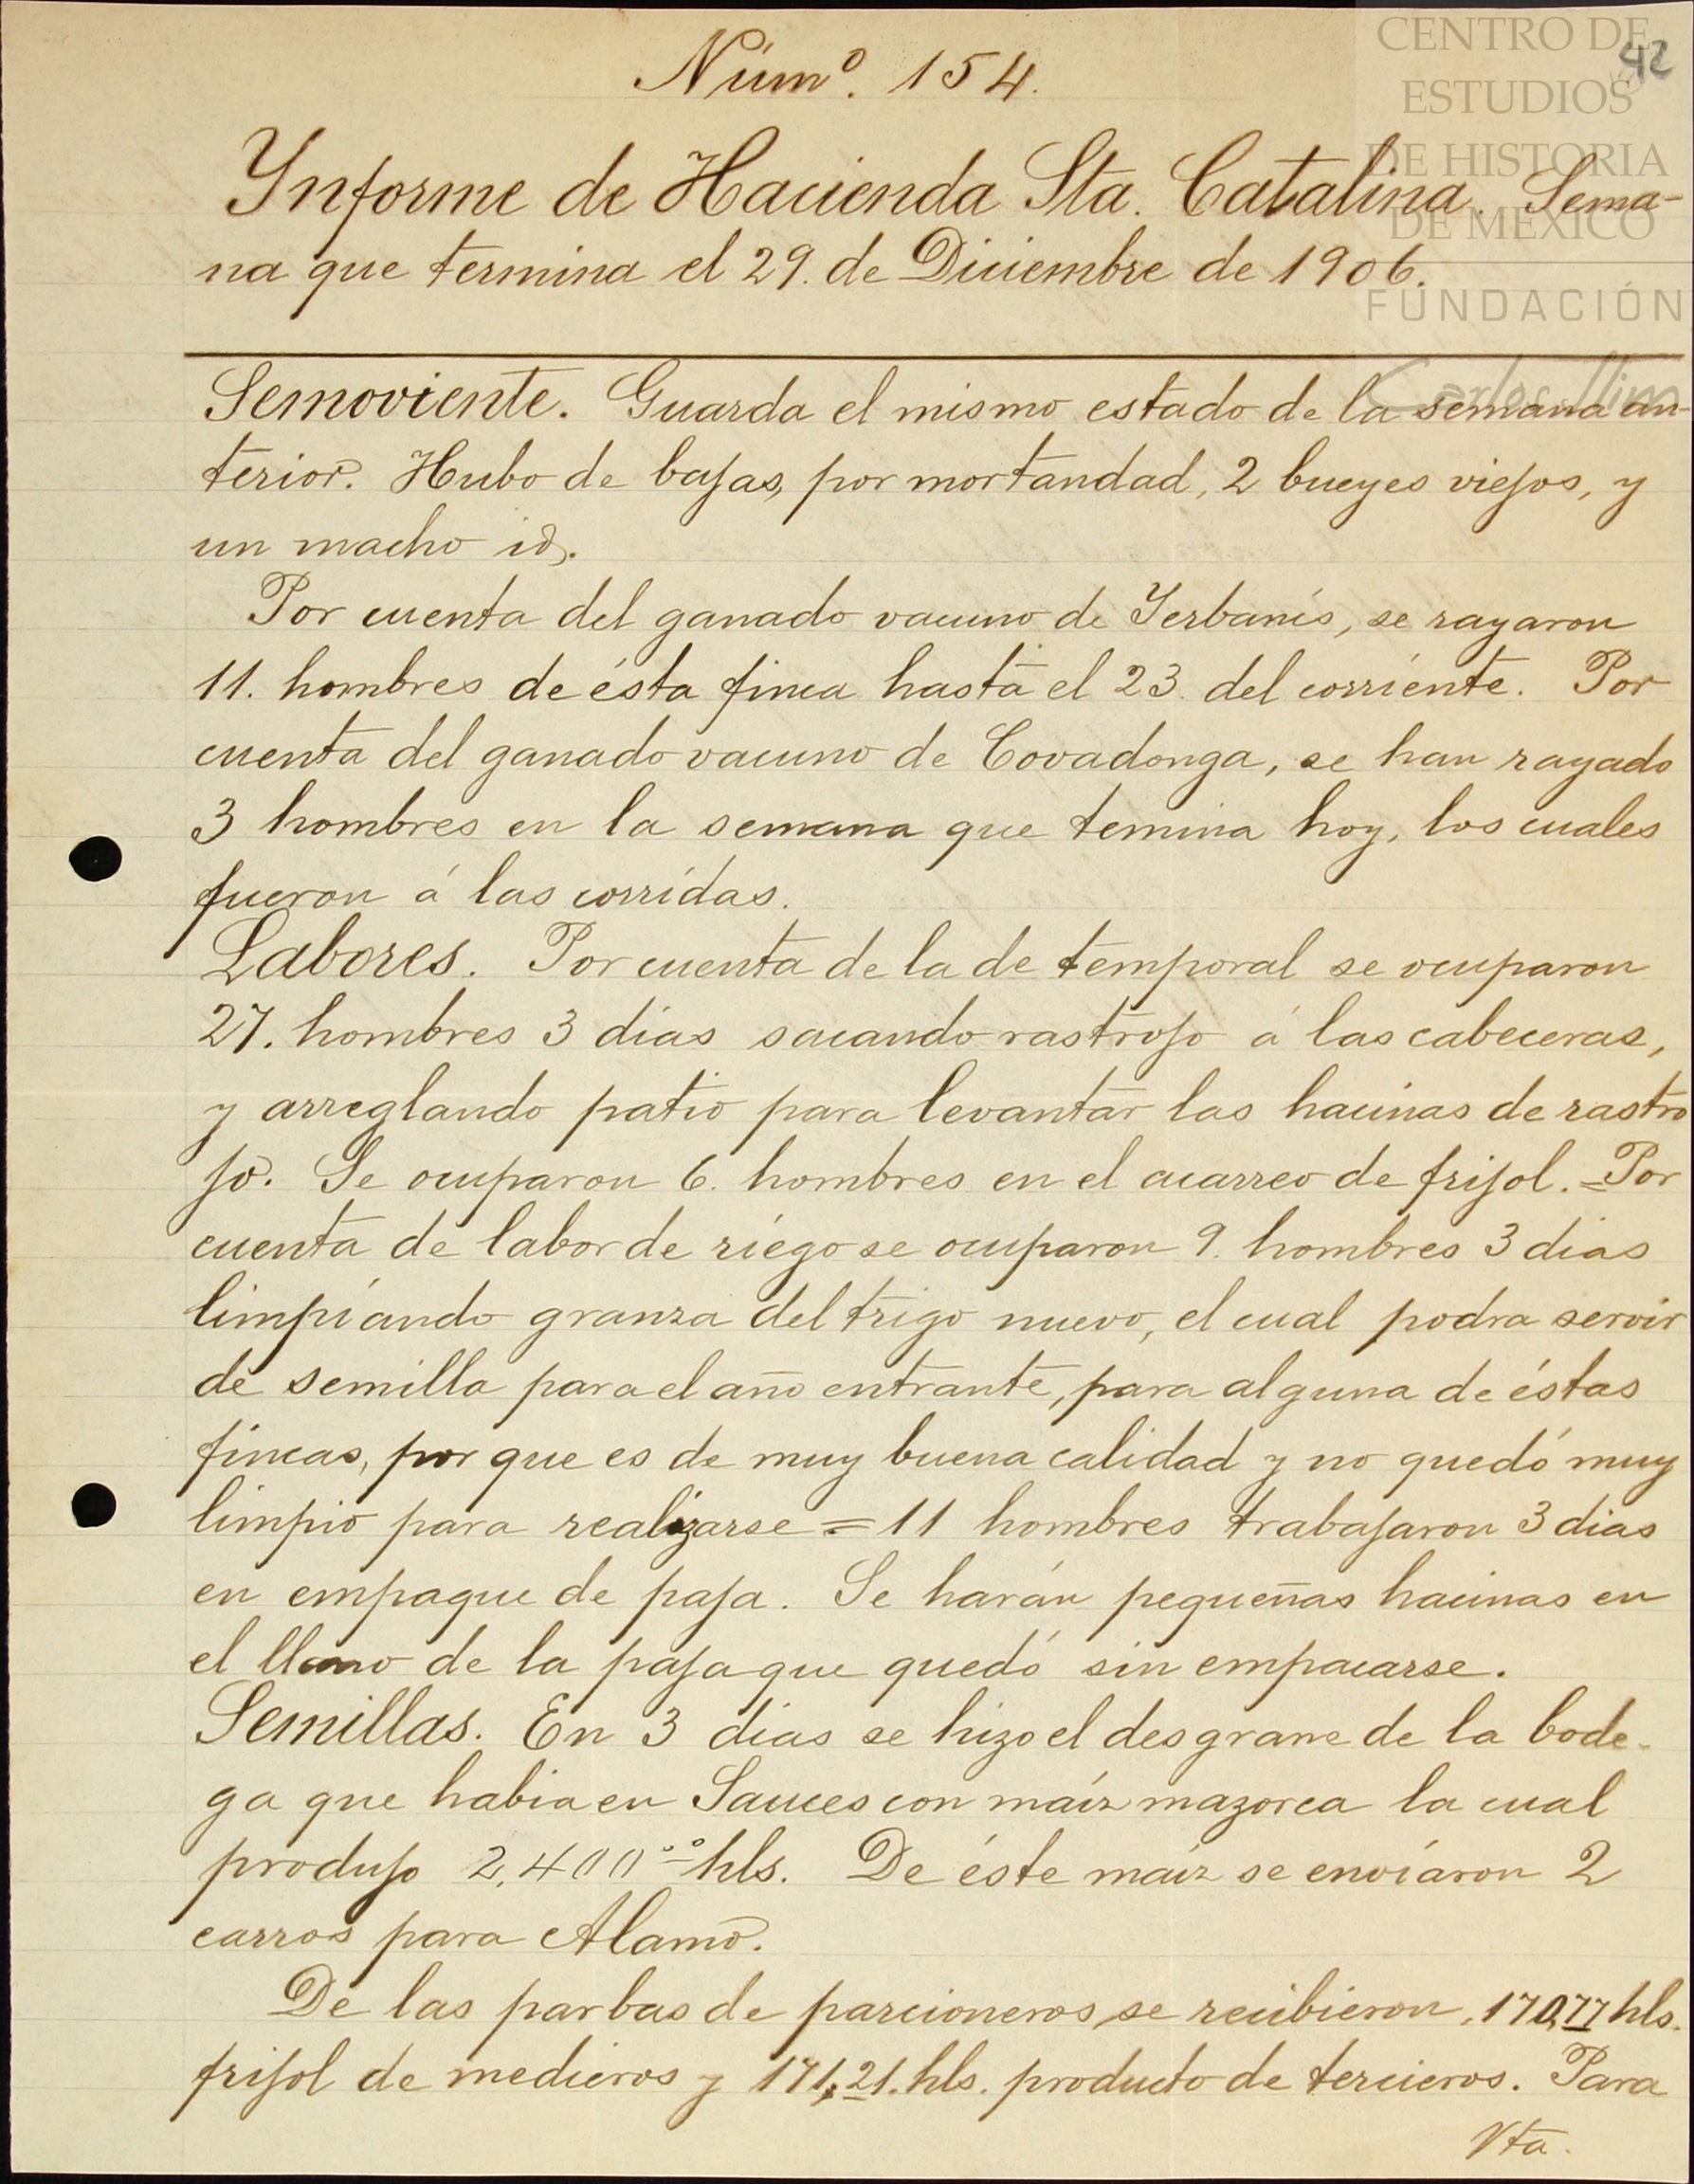 CENTRO DE
ESTUDIOS
DE HISTORIA
DE MÉXICO
FUNDACIÓN
Carlos Slim
42
Núm⁰. 154.
Ynforme de Hacienda Sta. Catalina. Sema-
na que termina el 29. de Diciembre de 1906.
Semoviente. Guarda el mismo estado de la semana an-
terior. Hubo de bajas, por mortandad, 2 bueyes viejos, y
un macho id.
Por cuenta del ganado vacuno de Yerbanís, se rayaron
11. hombres de ésta finca hasta el 23. del corriente. Por
cuenta del ganado vacuno de Covadonga, se han rayado
3 hombres en la semana que temina hoy, los cuales
fueron á las corridas.
Labores. Por cuenta de la de temporal se ocuparon
27. hombres 3 dias sacando rastrojo á las cabeceras,
y arreglando patio para levantar las hacinas de rastro
jo. Se ocuparon 6. hombres en el acarreo de frijol. = Por
cuenta de labor de riego se ocuparon 9. hombres 3 dias
limpiando granza del trigo nuevo, el cual podra servir
de semilla para el año entrante, para alguna de éstas
fincas, por que es de muy buena calidad y no quedó muy
limpio para realizarse = 11 hombres trabajaron 3 dias
en empaque de paja. Se harán pequeñas hacinas en
el llano de la paja que quedó sin empacarse.
Semillas. En 3 dias se hizo el desgrane de la bode-
ga que habia en Sauces con maíz mazorca la cual
produjo 2,400⁰⁰ hls. De éste maíz se enviaron 2
carros para Alamo.
De las parbas de parcioneros, se recibieron, 170,77 hls.
frijol de medieros y 171,21. hls. producto de tercieros. Para
Vta.